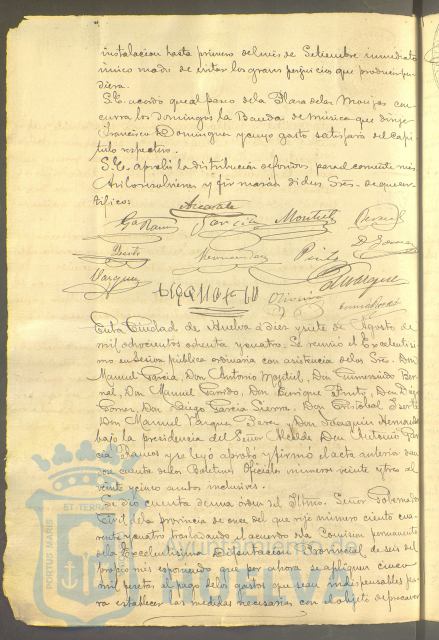 instalacion hasta primero del mes de Setiembre inmediato
único modo de evitar los graves perjuicios que producir pu-
diera.
S.E. acordó que al paseo de la Plaza de las Monjas con-
curra los Domingos la Banda de música que dirije
Francisco Dominguez y cuyo gasto satisfará del capi-
tulo respectivo.
S.E. aprobó la distribución de fondos para el corriente mes
Asi lo resolvieron y firmaran dichos Sres. de que cer-
tifico:
García Montiel
Hernandez Pinto
Vazquez
Oliveira
En la Ciudad de Huelva a diez y siete de Agosto de
mil ochocientos ochenta y cuatro: Se reunió el Excelentísimo
en sesion pública ordinaria con asistencia de los Sres. Don
Manuel García, Don Antonio Montiel, Don Ber-
nal, Don Manuel Garrido, Don Enrique Pinto, Don
Gomez, Don Diego Garcia Sierra, Don Cristobal
Don Manuel Vazquez Perez, Don Joaquin Hernandez
bajo la presidencia del Señor Alcalde Don Antonio Gar-
cía Ramos y se leyó aprobó y firmó el acta anterior dan-
dose cuenta de los Boletines Oficiales numeros veinte y tres al
veinte y cinco ambos inclusives.
Se dió cuenta de una orden del Iltmo. Señor Gobernador
Civil de la provincia de once del que rije número ciento cua-
renta y cuatro trasladando el acuerdo de la Comision permanente
de la Excelentísima Diputación Provincial de seis del
propio mes esponiendo que por ahora se apliquen cinco
mil pesetas al pago de los gastos que sean indispensables pa-
ra establecer las medidas necesarias con el objeto de procurar
PORTUS MARIS ET TERRAE